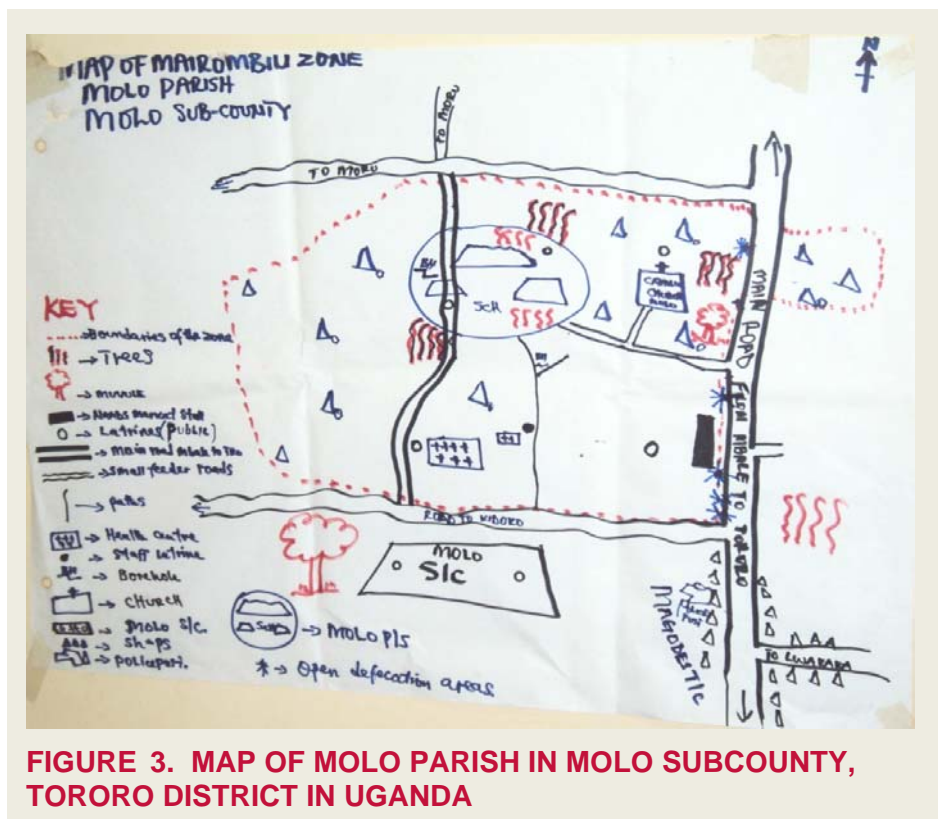 MAP OF MAIROMBILI ZONE
MOLO PARISH
MOLO SUB-COUNTY
N
TO MORU
TO MORU
BH
SCH
CATHOLIC CHURCH MOLO
MAIN ROAD FROM MBALE TO TORORO
BH
ROAD TO KIDOKO
MOLO
S/c
MAGODESTIC
TO LWAKABA
KEY
→ Boundaries of the zone
→ Trees
→
→ Market Stall
→ Latrines (Public)
→ Main road Mbale to
→ Small feeder roads
→ paths
→ Health centre
→ Staff latrine
→ Borehole
→ CHURCH
→ MOLO S/C.
→ Shops
→
Sch
→ MOLO P/S
* → Open defecation areas
FIGURE 3. MAP OF MOLO PARISH IN MOLO SUBCOUNTY,
TORORO DISTRICT IN UGANDA